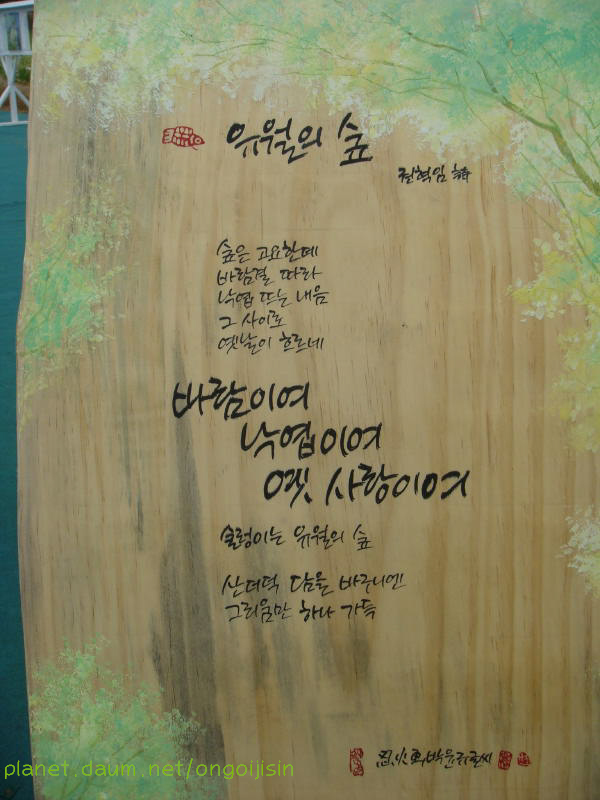 유월의 숲
권혁임 詩
숲은 고요한데
바람결 따라
낙엽 뜨는 내음
그 사이로
옛날이 흐르네
바람이여
낙엽이여
옛 사랑이여
술렁이는 유월의 숲
산더덕 담을 바구니엔
그리움만 하나 가득
planet.daum.net/ongoijisin